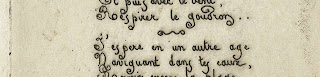 Et puis avec le vent,
Respirer le goudron . .
J'espere en un autre age
Naviguant dans tes eaux,